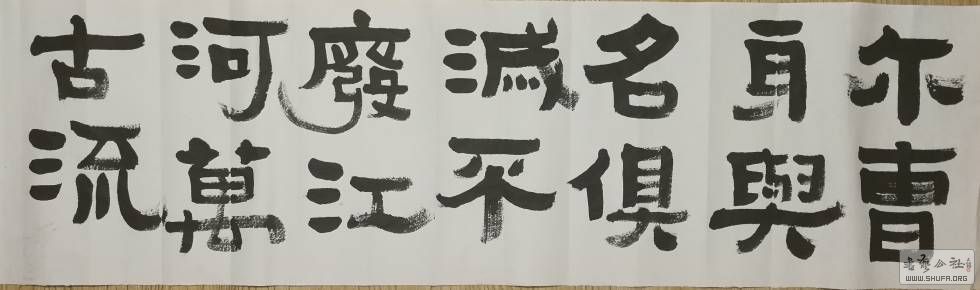 尔曹
身與
名俱
滅不
廢江
河萬
古流
书艺公社
WWW.SHUFA.ORG